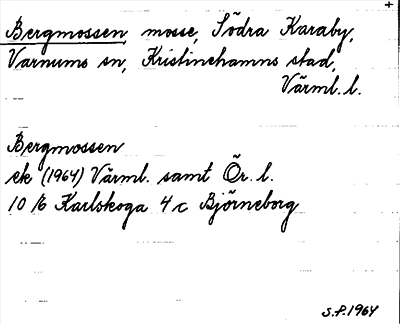 Bergmossen mosse, Södra Karaby,
Varnums sn, Kristinehamns stad,
Värml. l.
Bergmossen
ek (1964) Värml. samt Ör. l.
10 E Karlskoga 4 c Björneborg
S.P. 1964